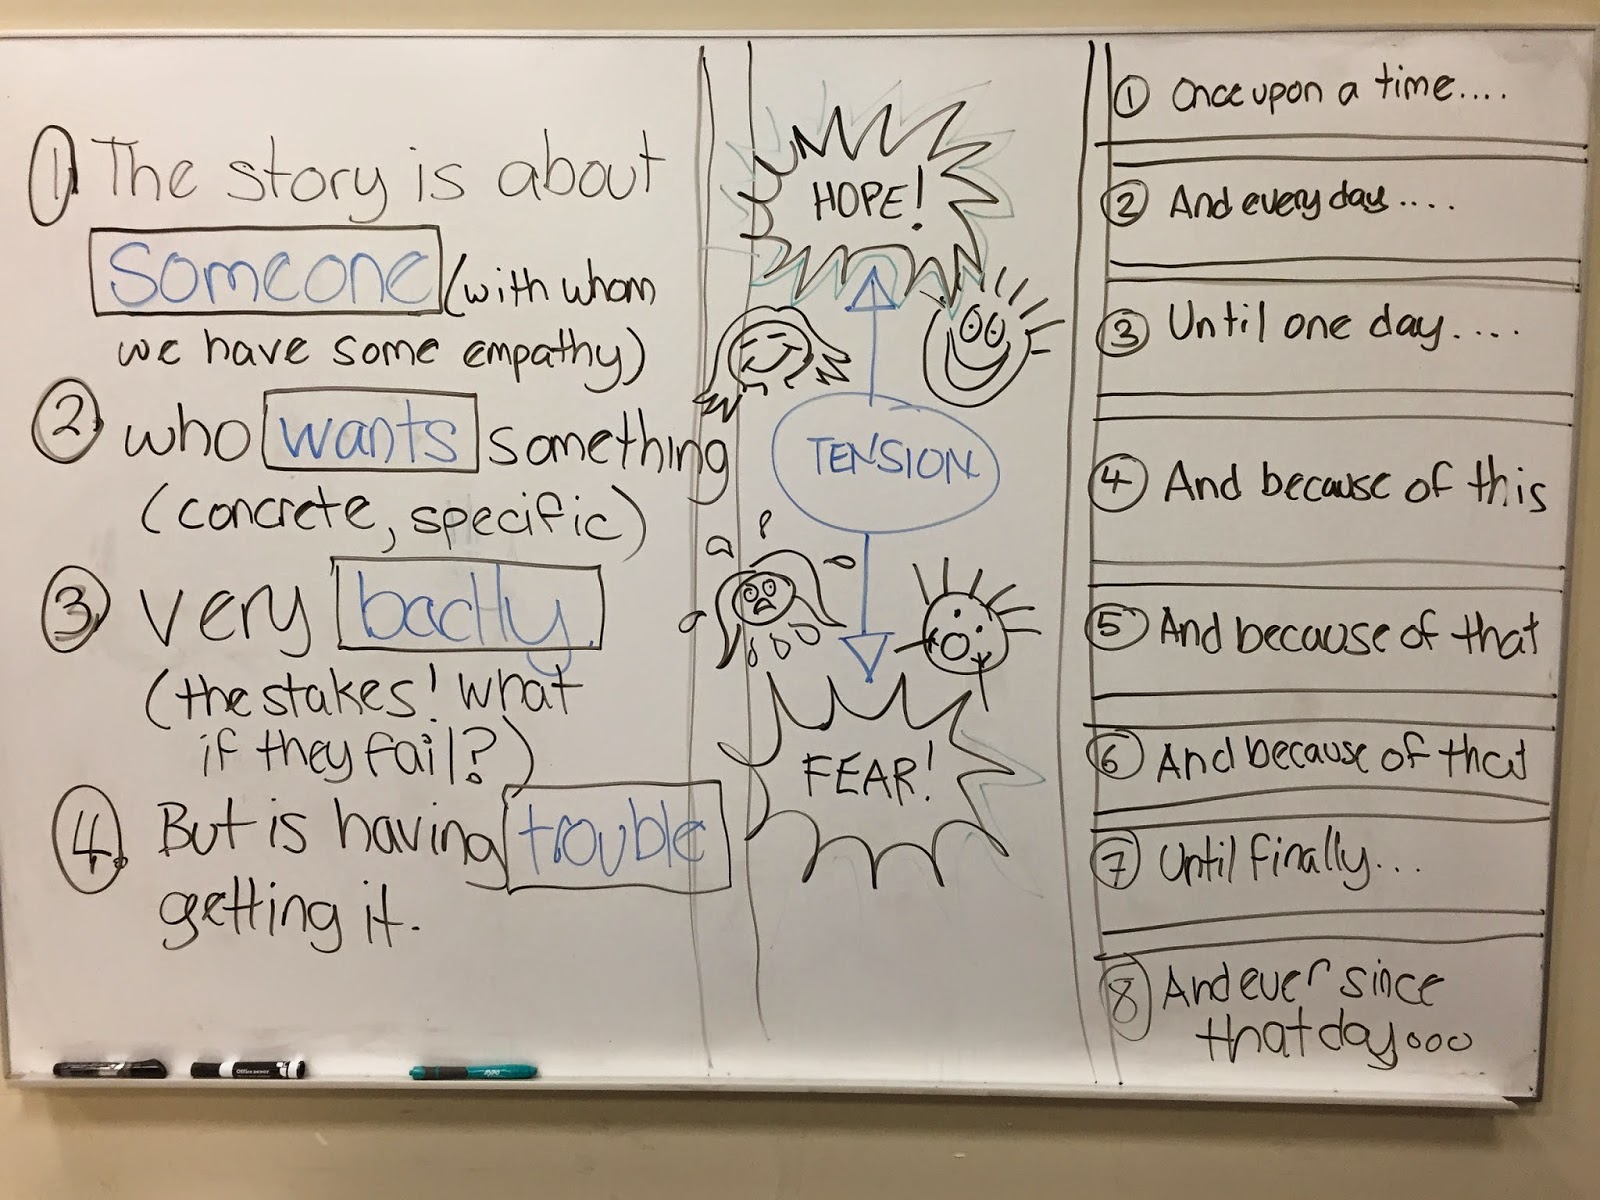 1 The story is about
someone (with whom
we have some empathy)
2 who wants something
(concrete, specific)
3 very badly
(the stakes! what
if they fail?)
4. But is having trouble
getting it.
HOPE!
TENSION
FEAR!
1 Once upon a time....
2 And every day....
3 Until one day....
4 And because of this
5 And because of that
6 And because of that
7 Until finally...
8 And ever since
that day...
Office DEPOT
EXPO